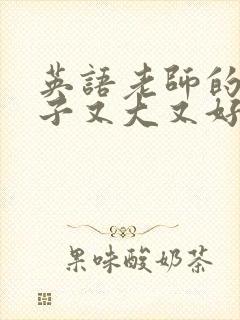 英語老師的
子又大又好
果味酸奶茶